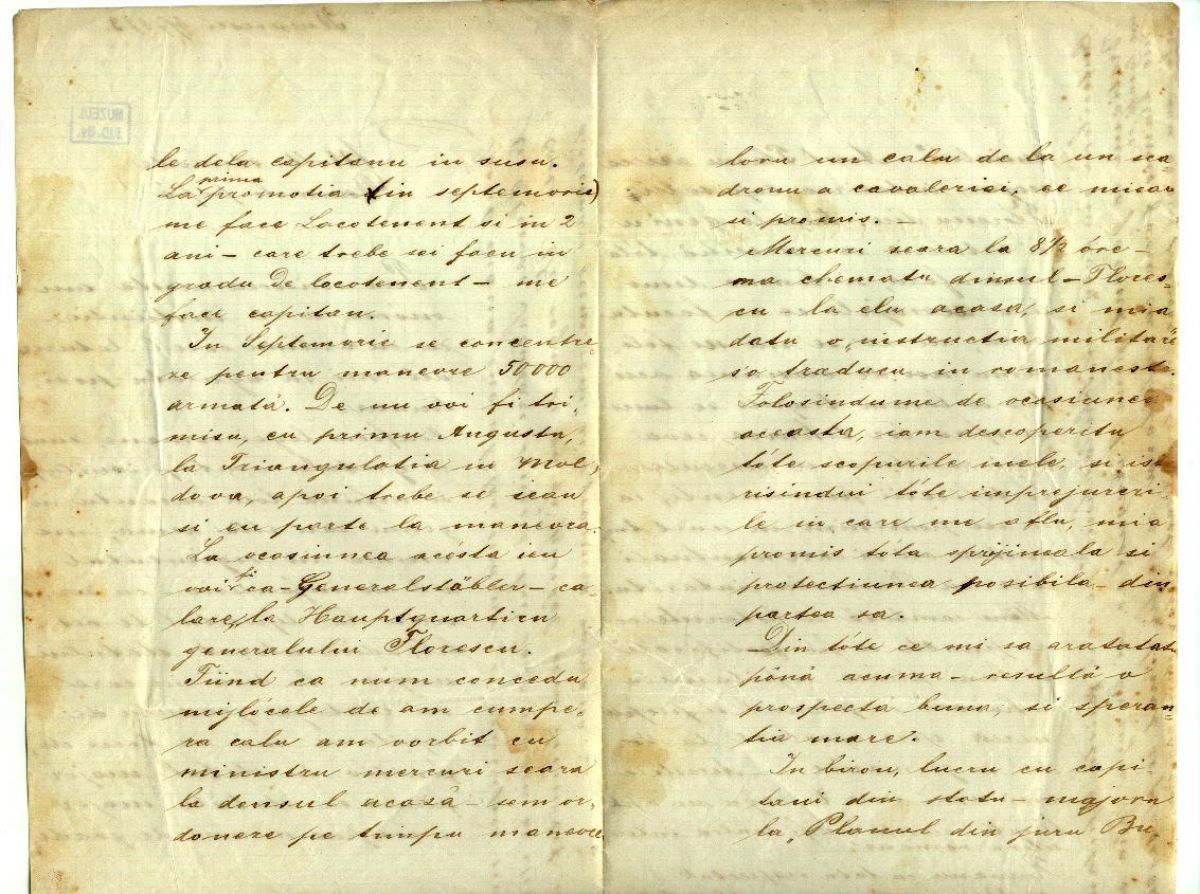 le dela capitanu in susu.
La prima promotia (in septemvrie)
me face Locotenent si in 2
ani - care trebe sei facu in
gradu De locotenent - me
face capitan.
In Septemvrie se concentre-
ze pentru manevre 50000
armată. De nu voi fi tri-
misu, cu primu Augustu,
la Triangulatia in Mol-
dova, apoi trebe se ieau
si eu parte la manevra.
La ocasiunea acésta ieu
voi fi ca - Generalstäbler - ca-
lare, la Hauptquartieru
generalului Florescu.
Fiind ca numi concedu
mijlócele de am cumpe-
ra calu am vorbit cu
ministru mercuri seara
la densul acasă - sem or-
doneze pe timpu manevre
loru un calu de la un sca-
dronu a cavaleriei, ce miau
si promis. -
Mercuri seara la 8½ óre -
ma chematu dinsul - Flores-
cu - la elu acasa, si mia
datu o „instructia militară
s'o traducu in romaneste.
Folosindume de ocasiunea
aceasta, iam descoperitu
tóte scopurile mele, si ist
risindui tóte imprejureri
le in care me aflu, mia
promis tóta sprijineala si
protectiunea posibila - din
partea sa.
Din tóte ce mi sa aratatu
pănă acuma - resultă o
prospecta buna, si speran-
tia mare.
In birou, lucru cu capi-
tani din statu - majoru
la „Planul din juru Bu-
MUZEUL